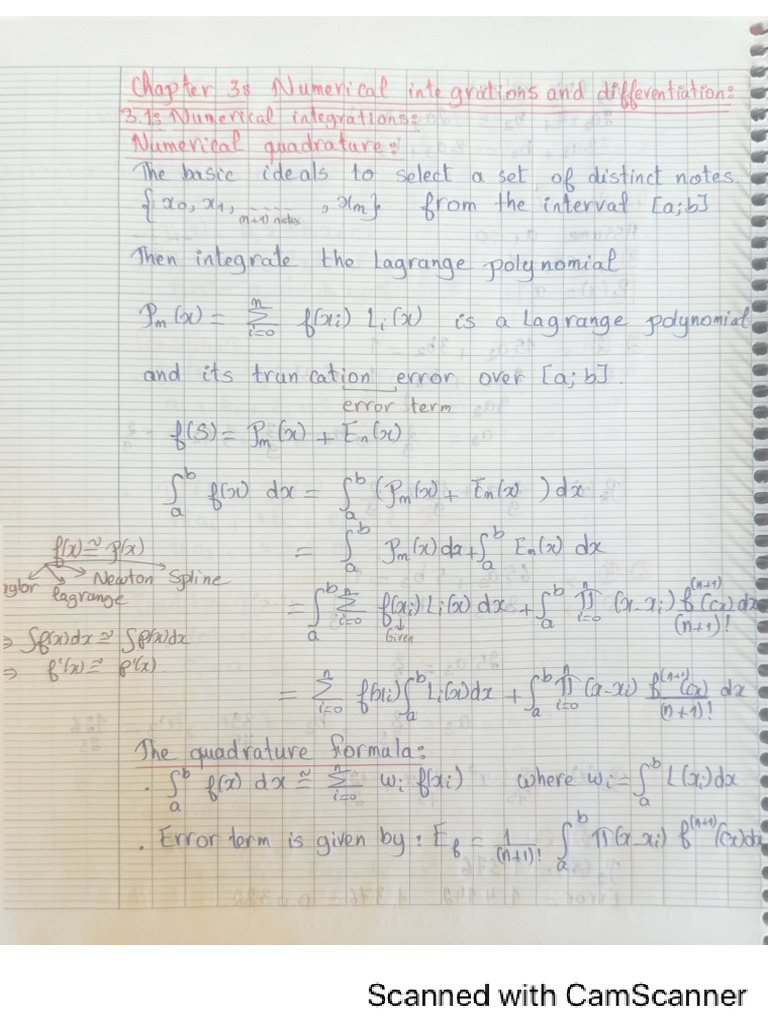 Chapter 3: Numerical integrations and differentiation:
3.1: Numerical integrations:
Numerical quadrature:
The basic ideals to select a set of distinct notes
{x₀, x₁, ......, xₘ} from the interval [a;b]
(n+1) notes
Then integrate the Lagrange polynomial
Pₘ(x) = Σ_{i=0}^{n} f(xᵢ) Lᵢ(x) is a Lagrange polynomial
and its truncation error over [a;b].
error term
f(S) = Pₘ(x) + Eₙ(x)
∫_a^b f(x) dx = ∫_a^b (Pₘ(x) + Eₙ(x) ) dx
= ∫_a^b Pₘ(x) dx + ∫_a^b Eₙ(x) dx
f(x) ≃ p(x)
Newton Spline
lagrange
= ∫_a^b Σ_{i=0}^{n} f(xᵢ) Lᵢ(x) dx + ∫_a^b Π_{i=0}^{n} (x-xᵢ) f^{(n+1)}(cx) dx / (n+1)!
Given
⇒ ∫f(x)dx ≃ ∫p(x)dx
⇒ f'(x) ≃ p'(x)
= Σ_{i=0}^{n} f(xᵢ) ∫_a^b Lᵢ(x) dx + ∫_a^b Π_{i=0}^{n} (x-xᵢ) f^{(n+1)}(cx) / (n+1)! dx
The quadrature formala:
. ∫_a^b f(x) dx ≃ Σ_{i=0}^{n} wᵢ f(xᵢ) where wᵢ = ∫_a^b L(xᵢ) dx
. Error term is given by: E_f = 1/(n+1)! ∫_a^b Π(x-xᵢ) f^{(n+1)}(cx) dx
Scanned with CamScanner